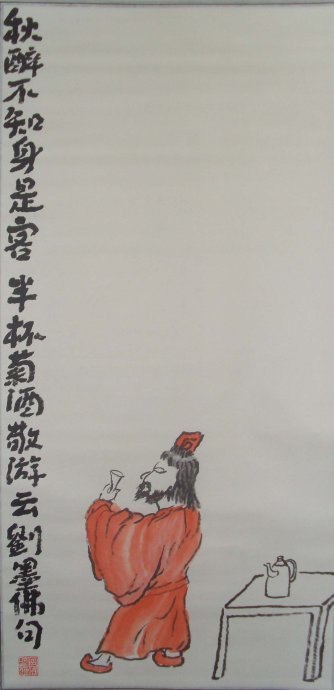 秋醉不知身是客 半杯菊酒敬游云 劉墨佛句